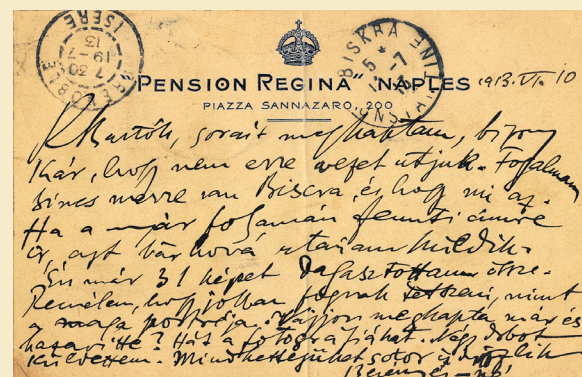 GRENOBLE
17 30
19-7
13
ISERE
BISKRA
"PENSION REGINA" NAPLES
PIAZZA SANNAZARO, 200
1913. VI. 10
Bartók, sorait megkaptam, bizony
kár, hogy nem erre vezet útjuk. Fogalmam
sincs merre van Biscra, és hogy mi az.
Ha a már folyamán fennti címre
ír, azt bárhová utánam küldik.
Én már 31 képet össze.
Remélem, hogy jobban fognak tetszeni, mint
a maga portréja. Vajjon megkapta már és
hazavitte? Hát a fotográfiákat. Négy dobot
küldettem. Mindkettőjüket
Berény